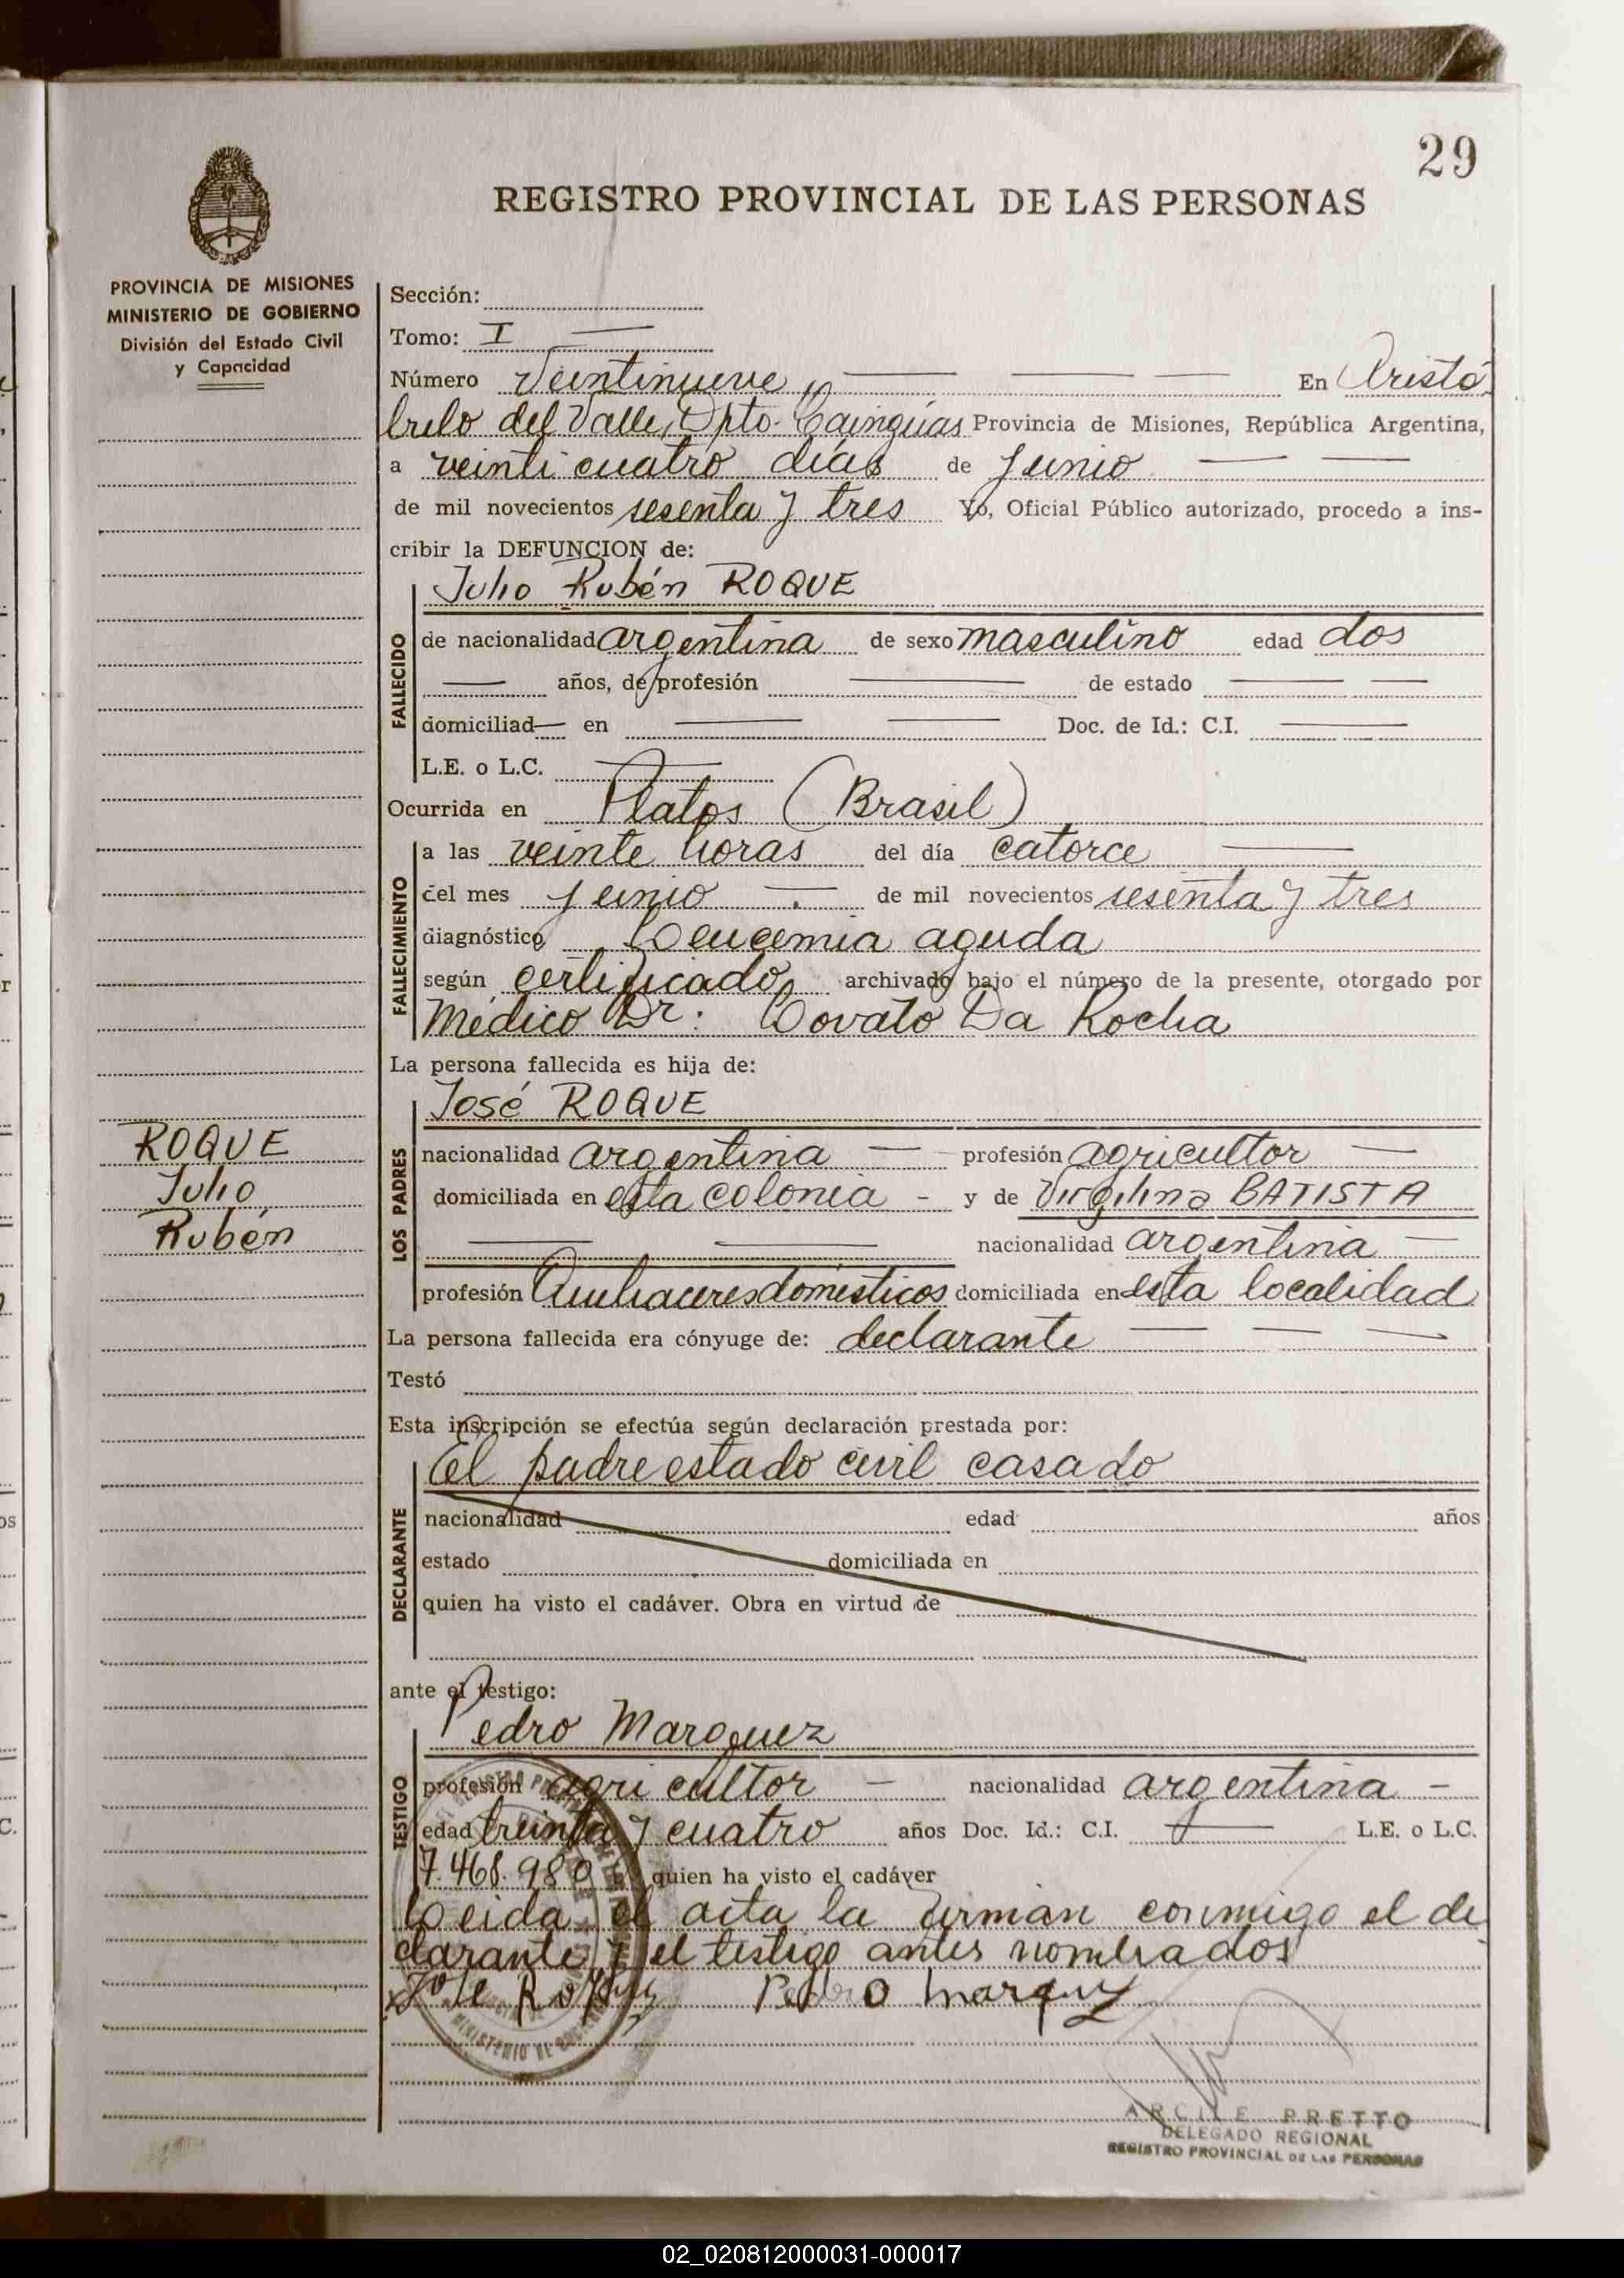 29
REGISTRO PROVINCIAL DE LAS PERSONAS
PROVINCIA DE MISIONES
MINISTERIO DE GOBIERNO
División del Estado Civil
y Capacidad
Sección:
Tomo: I
Número Veintinueve En Aristó
bulo del Valle, Dpto. Cainguas Provincia de Misiones, República Argentina,
a veinticuatro días de Junio
de mil novecientos sesenta y tres Yo, Oficial Público autorizado, procedo a ins-
cribir la DEFUNCION de:
Julio Rubén ROQUE
FALLECIDO
de nacionalidad argentina de sexo masculino edad dos
años, de profesión de estado
domiciliad en Doc. de Id.: C.I.
L.E. o L.C.
Ocurrida en Platos (Brasil)
FALLECIMIENTO
a las veinte horas del día catorce
del mes junio de mil novecientos sesenta y tres
diagnóstico Leucemia aguda
según certificado archivado bajo el número de la presente, otorgado por
Médico Dr: Lovato Da Rocha
La persona fallecida es hija de:
José ROQUE
LOS PADRES
nacionalidad argentina profesión agricultor
domiciliada en esta colonia - y de Virgilina BATISTA
nacionalidad argentina
profesión Quehaceres domésticos domiciliada en esta localidad
La persona fallecida era cónyuge de: declarante
Testó
Esta inscripción se efectúa según declaración prestada por:
El padre estado civil casado
DECLARANTE
nacionalidad edad años
estado domiciliada en
quien ha visto el cadáver. Obra en virtud de
ante el testigo:
Pedro Marquez
TESTIGO
profesión agricultor nacionalidad argentina -
edad treinta y cuatro años Doc. Id.: C.I. L.E. o L.C.
7.468.980 quien ha visto el cadáver
Leida el acta la firman conmigo el de
clarante y el testigo antes nombrados
José Pedro Marquez
DELEGADO REGIONAL
REGISTRO PROVINCIAL DE LAS PERSONAS
ROQUE
Julio
Rubén
02_020812000031-000017